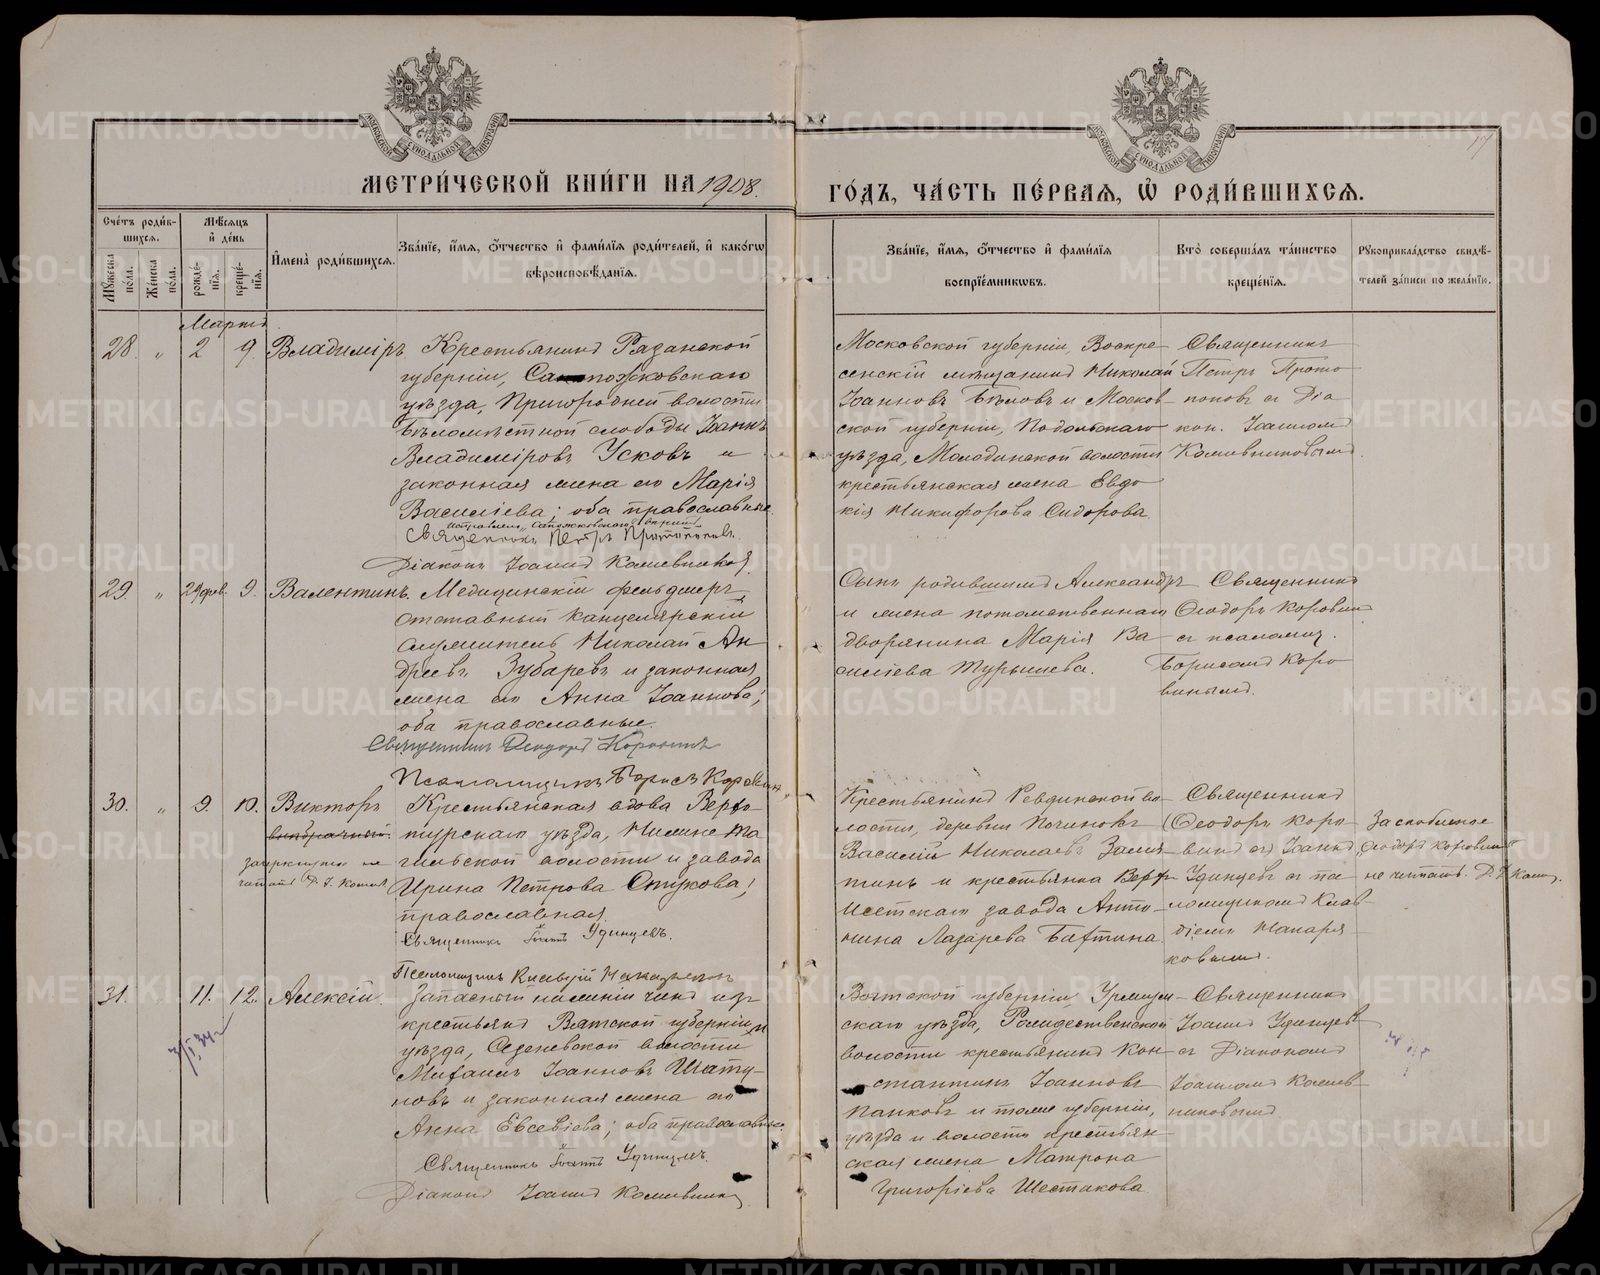 МЕТРИ́ЧЕСКОЙ КНИ́ГИ НА 1908.
ГО́ДЪ, ЧА́СТЬ ПЕ́РВАЯ, Ѡ҆ РОДИ́ВШИХСЯ.
Сче́тъ роди́в-
шихся.
Му́жеска по́ла.
Же́нска по́ла.
Мѣ́сяцъ и҆ де́нь
рожде́-
нїя.
креще́-
нїя.
И҆мена̀ роди́вшихся.
Зва́нїе, и҆́мя, ѻ҆́тчество и҆ фами́лїя роди́телей, и҆ како́гѡ
вѣроисповѣ́данїя.
Зва́нїе, и҆́мя, ѻ҆́тчество и҆ фами́лїя
воспрїе́мниковъ.
Кто̀ соверша́лъ та́инство
креще́нїя.
Рꙋкоприкла́дство свидѣ́-
телей за́писи по жела́нїю.
Мартъ
28. " 2 9. Владиміръ.
Крестьянинъ Рязанской
губерніи, Сапожковскаго
уѣзда, Пригородней волости
Бѣломѣстной слободы Іоаннъ
Владиміровъ Усковъ и
законная жена его Марія
Василіева; оба православные.
Священникъ Петръ Протопоповъ.
Діаконъ Іоаннъ Кожевниковъ.
Московской губерніи, Воскре-
сенскій мѣщанинъ Николай
Іоанновъ Бѣловъ и Москов-
ской губерніи, Подольскаго
уѣзда, Молодинской волости
крестьянская жена Евдо-
кія Никифорова Сидорова.
Священникъ
Петръ Прото-
поповъ съ Діа-
кон. Іоанномъ
Кожевниковымъ.
29. " 29 фев. 9. Валентинъ.
Медицинскій фельдшеръ,
отставный канцелярскій
служитель Николай Ан-
дреевъ Зубаревъ и законная
жена его Анна Іоаннова;
оба православные.
Священникъ Ѳеодоръ Коровинъ
Псаломщикъ Борисъ Коровинъ
Сынъ родившимъ Александръ
и жена потомственнаго
дворянина Марія Ва-
силіева Турышева.
Священникъ
Ѳеодоръ Коровинъ
съ псаломщ.
Борисомъ Коро-
винымъ.
30. " 9. 10. Викторъ
внѣбрачный.
зачеркнутое не
читать
Крестьянская вдова Верхо-
турскаго уѣзда, Нижне-Та-
гильской волости и завода
Ирина Петрова Стукова;
православная.
Священникъ Іоаннъ Удинцевъ.
Псаломщикъ Клавдій Макарьковъ
Крестьянинъ Ревдинской во-
лости, деревни Починовъ
Василій Николаевъ Замя-
тинъ и крестьянка Верхъ-
Исетскаго завода Анто-
нина Лазарева Бахтина.
Священникъ
(Ѳеодоръ Коро-
винъ) Іоаннъ
Удинцевъ съ пса-
ломщикомъ Клав-
діемъ Макарь-
ковымъ.
За скобками
Ѳеодоръ Коровинъ
не читать.
31. " 11. 12. Алексій.
Запасный на линіи чинъ изъ
крестьянъ Вятской губерніи и
уѣзда, Селеневской волости
Михаилъ Іоанновъ Шату-
новъ и законная жена его
Анна Евсевіева; оба православные.
Священникъ Іоаннъ Удинцевъ.
Діаконъ Іоаннъ Кожевниковъ
Вятской губерніи Уржум-
скаго уѣзда, Рождественской
волости крестьянинъ Кон-
стантинъ Іоанновъ
Панковъ и тоже губерніи,
уѣзда и волости крестьян-
ская жена Матрона
Григоріева Шестакова.
Священникъ
Іоаннъ Удинцевъ
съ Діакономъ
Іоанномъ Кожев-
никовымъ.
METRIKI.GASO-URAL.RU